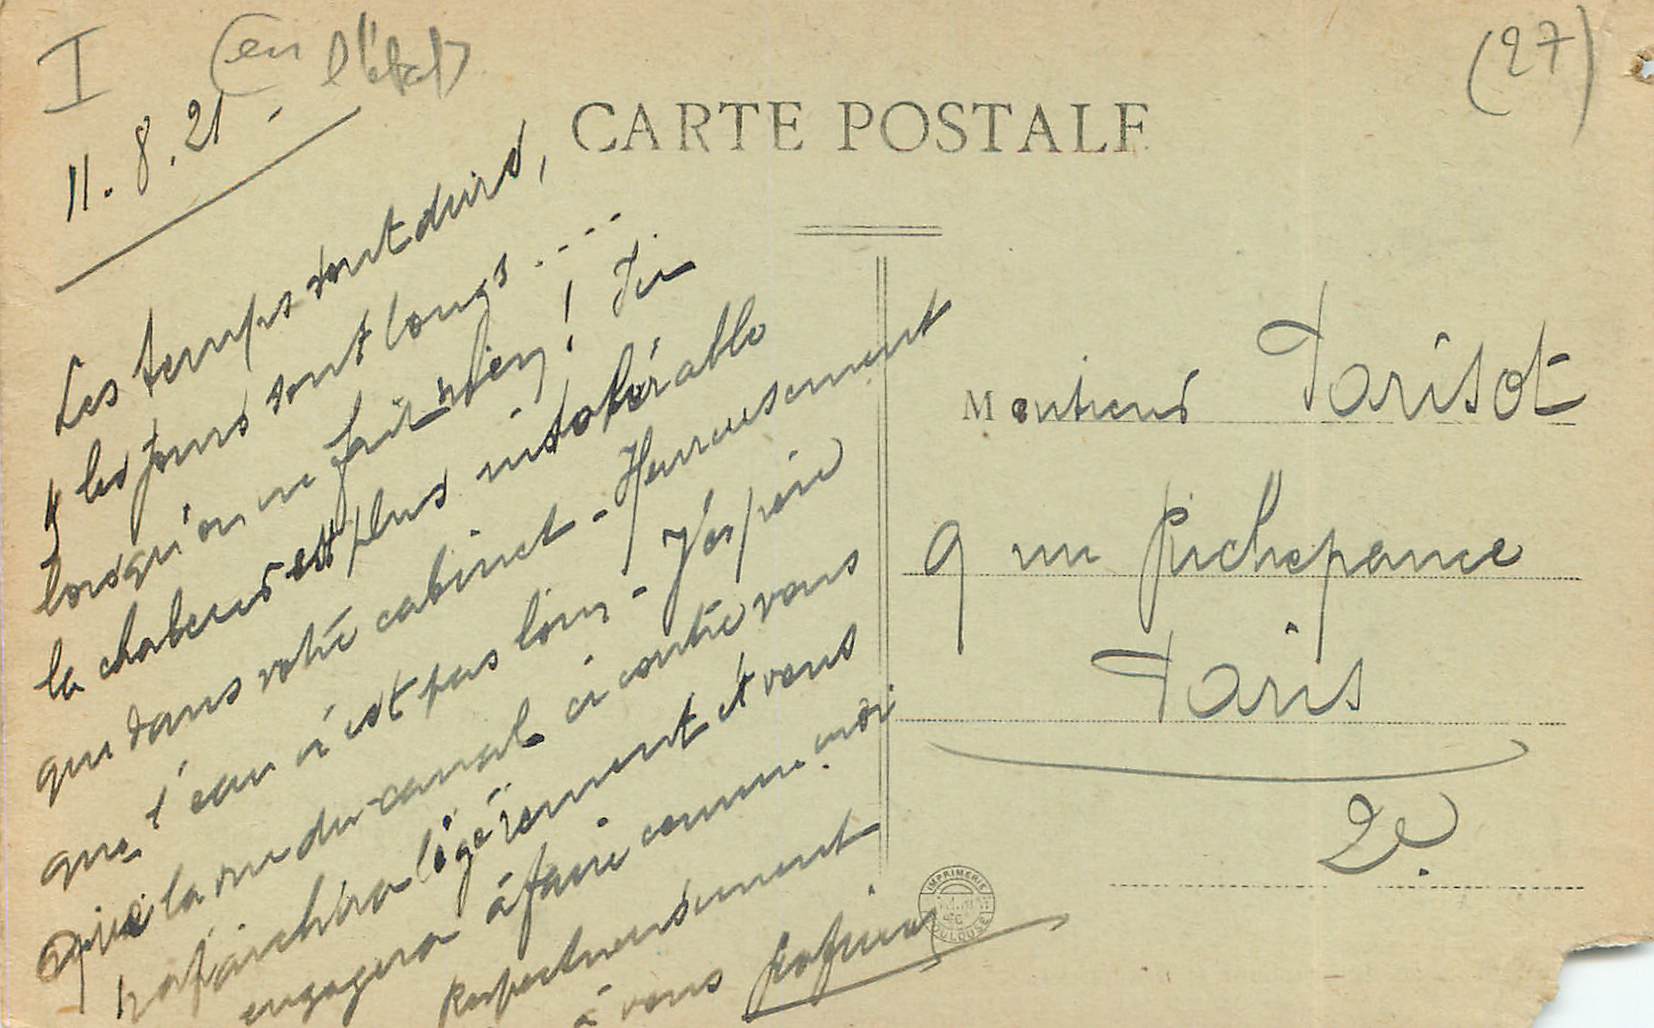 I (en l'état)
(27)
11.8.21.
CARTE POSTALE
Les temps sont durs,
& les jours sont longs ....
lorsqu'on ne fait rien! Ici
la chaleur est plus intolérable
que dans votre cabinet - Heureusement
que l'eau n'est pas loin - J'espère
que la vue du canal ci contre vous
rafraichira légèrement et vous
engagera à faire comme moi
Respectueusement
à vous
Monsieur Parisot
9 rue Richepance
Paris
2e
IMPRIMERIE
TOULOUSE